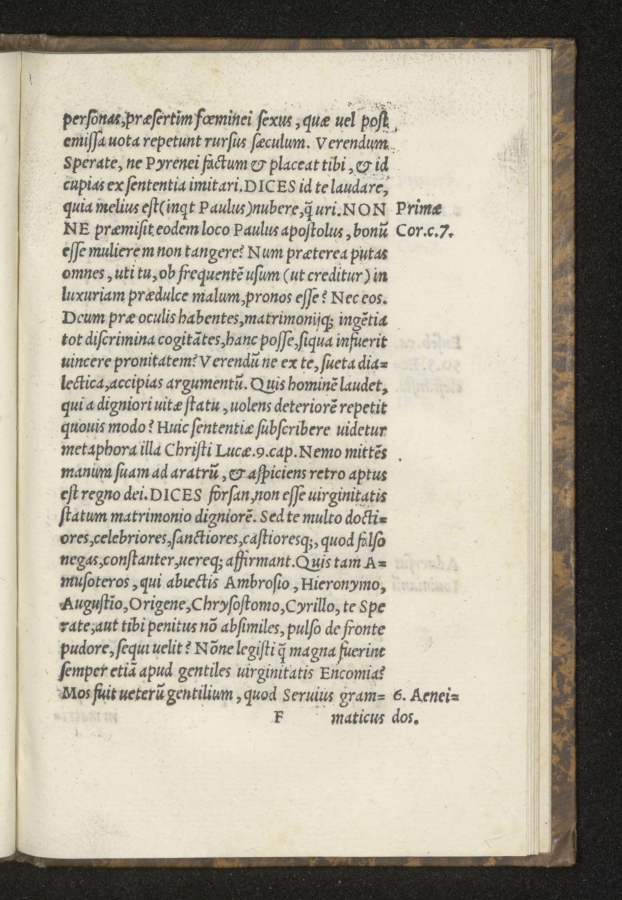 personas,præsertim fœminei sexus, quæ uel post
emissa uota repetunt rursus sæculum. Verendum
Sperate, ne Pyrenei factum & placeat tibi, & id
cupias ex sententia imitari. DICES id te laudare,
quia melius est(inqt Paulus)nubere,q̃ uri. NON
Primæ
NE præmisit eodem loco Paulus apostolus, bonū
Cor.c.7.
esse mulierem non tangere? Num præterea putas
omnes, uti tu, ob frequentē usum (ut creditur) in
luxuriam prædulce malum,pronos esse? Nec eos.
Deum præ oculis habentes,matrimonijq; ingētia
tot discrimina cogitātes,hanc posse,siqua infuerit
uincere pronitatem? Verendū ne ex te,sueta dia=
lectica,accipias argumentū. Quis hominē laudet,
qui a digniori uitæ statu, uolens deteriorē repetit
quouis modo? Huic sententiæ subscribere uidetur
metaphora illa Christi Lucæ.9.cap. Nemo mittēs
manum suam ad aratrū, & aspiciens retro aptus
est regno dei. DICES forsan,non esse uirginitatis
statum matrimonio digniorē. Sed te multo docti=
ores,celebriores,sanctiores,castioresq;, quod falso
negas,constanter,uereq; affirmant. Quis tam A=
musoteros, qui abiectis Ambrosio, Hieronymo,
Augustīo,Origene,Chrysostomo,Cyrillo, te Spe
rate,aut tibi penitus nō absimiles, pulso de fronte
pudore, sequi uelit? Nōne legisti q̃ magna fuerint
semper etiā apud gentiles uirginitatis Encomia?
Mos fuit ueterū gentilium, quod Seruius gram=
6. Aenei=
F maticus
dos.